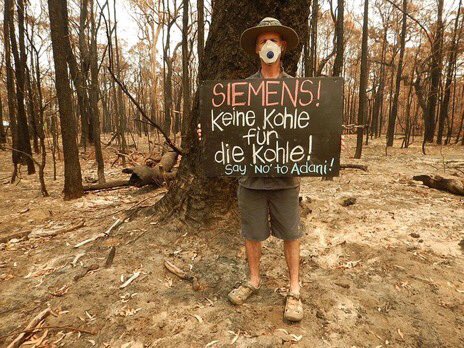 SIEMENS!
Keine Kohle
für
die Kohle!
Say 'No' to Adani!